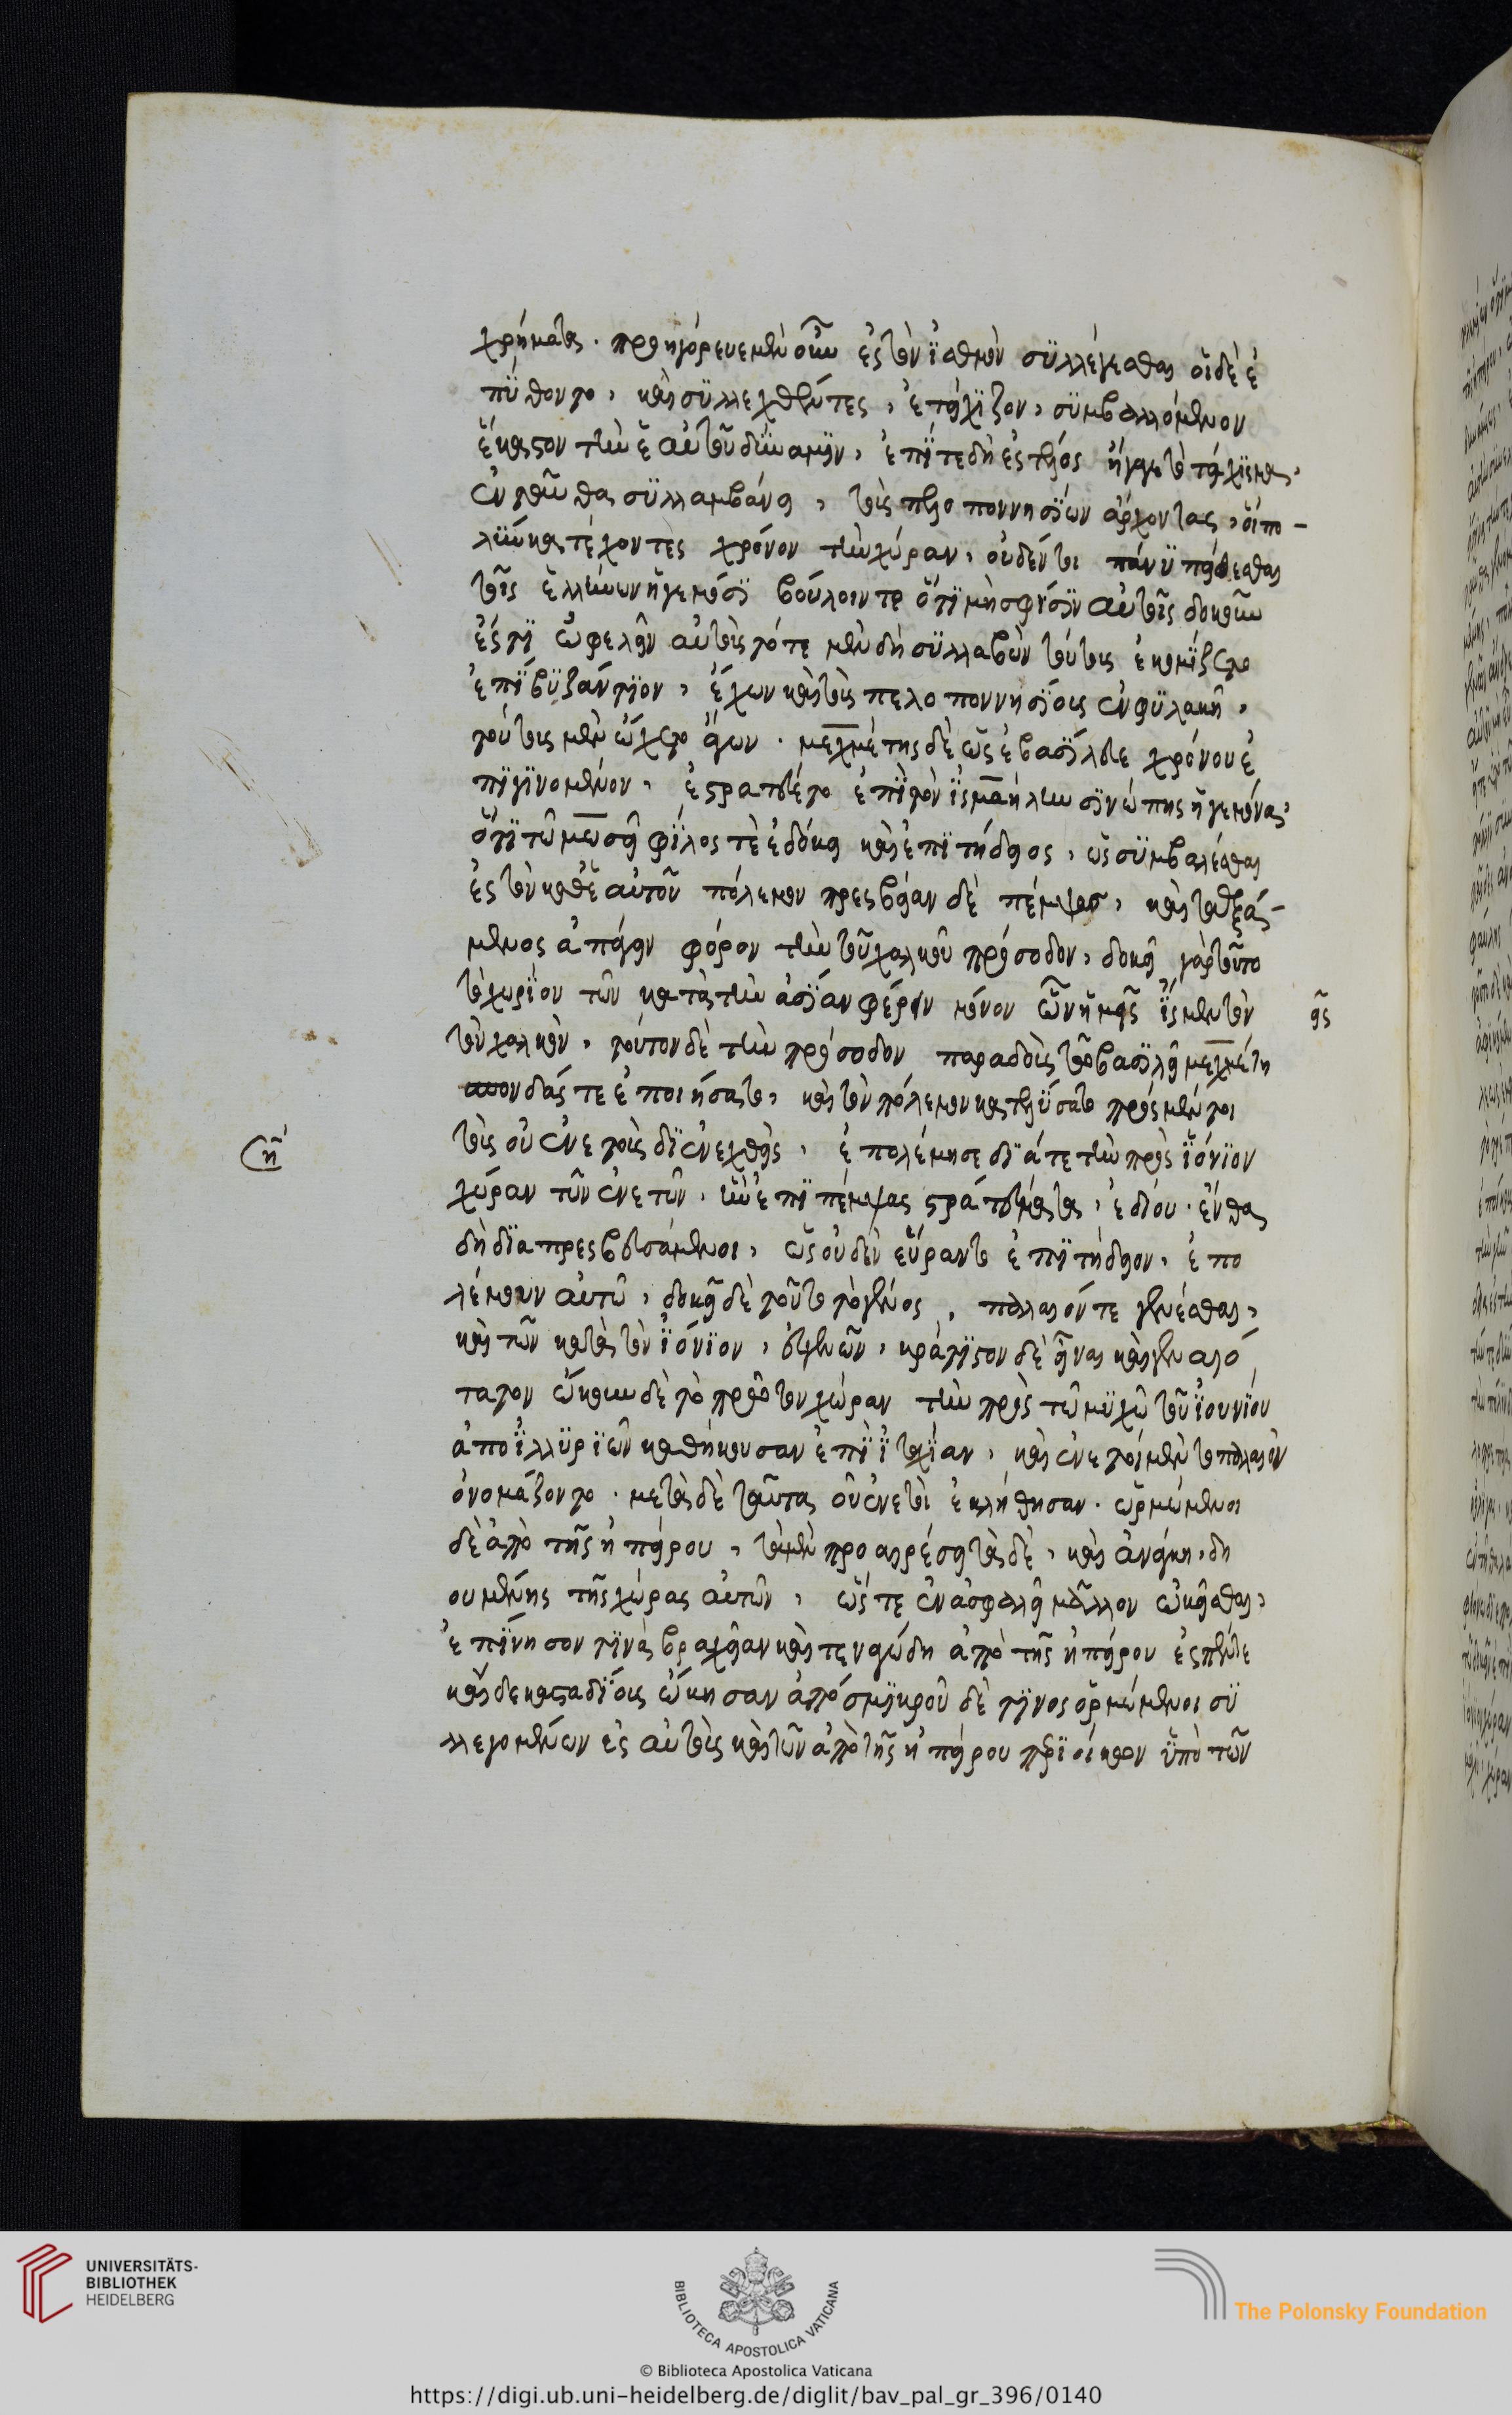 χρήματα. προηγόρευε μὲν οὖν ἐς τὸν ἰσθμὸν συλλέγεσθαι οἱ δὲ ἐ
πύθοντο, καὶ συλλεχθέντες, ἐτείχιζον, συμβαλλόμενον
ἕκαστον τὴν ἑαυτοῦ δύναμιν, ἐπεί τε δὴ ἐς τέλος ἤγαγε τὸ τείχισμα,
ἐνταῦθα συλλαμβάνει, τοὺς πελοποννησίων ἄρχοντας, οἳ πο-
λὺν κατέχοντες χρόνον τὴν χώραν, οὐδέν τι πάνυ πείθεσθαι
τοῖς ἑλλήνων ἡγεμόσι βούλοιντο ὅτι μὴ σφίσιν αὐτοῖς δοκοῦν
ἔς τι ὠφελεῖν αὐτοὺς τότε μὲν δὴ συλλαβὼν τούτους ἐκομίζετο
ἐπὶ βυζάντιον, ἔχων καὶ τοὺς πελοποννησίους ἐν φυλακῇ,
τούτους μὲν ᾤχετο ἄγων. μεχμέτης δὲ ὡς ἐβασίλευε χρόνου ἐ
πιγινομένου, ἐστρατεύετο ἐπὶ τὸν ἰσμαήλην σινώπης ἡγεμόνα,
ὅτι τῷ μουσῇ φίλος τὲ ἐδόκει καὶ ἐπιτήδειος, ὡς συμβαλέσθαι
ἐς τὸν καθ' ἑαυτοῦ πόλεμον πρεσβείαν δὲ πέμψας, καὶ ταξά-
μενος ἀπάγειν φόρον τὴν τοῦ χαλκοῦ πρόσοδον, δοκεῖ γὰρ τοῦτο
τὸ χωρίον τῶν κατὰ τὴν ἀσίαν φέρειν μόνον ὧν ἡμεῖς ἴσμεν τὸν
τὸν χαλκὸν, τούτου δὲ τὴν πρόσοδον παραδοὺς τῷ βασιλεῖ μεχμέτῃ
σπονδάς τε ἐποιήσατο, καὶ τὸν πόλεμον κατελύσατο πρὸς μέντοι
τοὺς οὐενετοὺς διενεχθεὶς, ἐπολέμησε διά τε τὴν πρὸς ἰόνιον
χώραν τῶν ἐνετῶν, ἣν ἐπιπέμψας στρατεύματα, ἐδῄου. ἔνθα
δὴ διαπρεσβευσάμενοι, ὡς οὐδὲν εὕραντο ἐπιτήδειον, ἐπο
λέμουν αὐτῷ, δοκεῖ δὲ τοῦτο τὸ γένος, παλαιόν τε γενέσθαι,
καὶ τῶν κατὰ τὸν ἰόνιον, ἐθνῶν, κράτιστον δὲ εἶναι καὶ γενναιό
τατον ᾤκουν δὲ τὸ πρῶτον χώραν τὴν πρὸς τῷ μυχῷ τοῦ ἰουνίου
ἀπὸ ἰλλυρίων καθήκουσαν ἐπὶ ἰταλίαν, καὶ ἐνετοὶ μὲν τὸ παλαιὸν
ὀνομάζοντο. μετὰ δὲ ταῦτα οὐενετοὶ ἐκλήθησαν. ὁρμώμενοι
δὲ ἀπὸ τῆς ἠπείρου, τὰ μὲν προαιρέσει τὰ δὲ, καὶ ἀνάγκῃ, δῃ
ουμένης τῆς χώρας αὐτῶν, ὥστε ἐν ἀσφαλεῖ μᾶλλον οἰκεῖσθαι,
ἐπὶ νῆσον τινὰ βραχεῖαν καὶ τεναγώδη ἀπὸ τῆς ἠπείρου ἐς πέντε
καὶ δέκα σταδίους ᾤκησαν ἀπὸ σμικροῦ δὲ τινος ὁρμώμενοι συ
λλεγομένων ἐς αὐτοὺς καὶ τῶν ἀπὸ τῆς ἠπείρου περιοίκων ὑπὸ τῶν
UNIVERSITÄTS-
BIBLIOTHEK
HEIDELBERG
BIBLIOTECA APOSTOLICA VATICANA
© Biblioteca Apostolica Vaticana
The Polonsky Foundation
https://digi.ub.uni-heidelberg.de/diglit/bav_pal_gr_396/0140